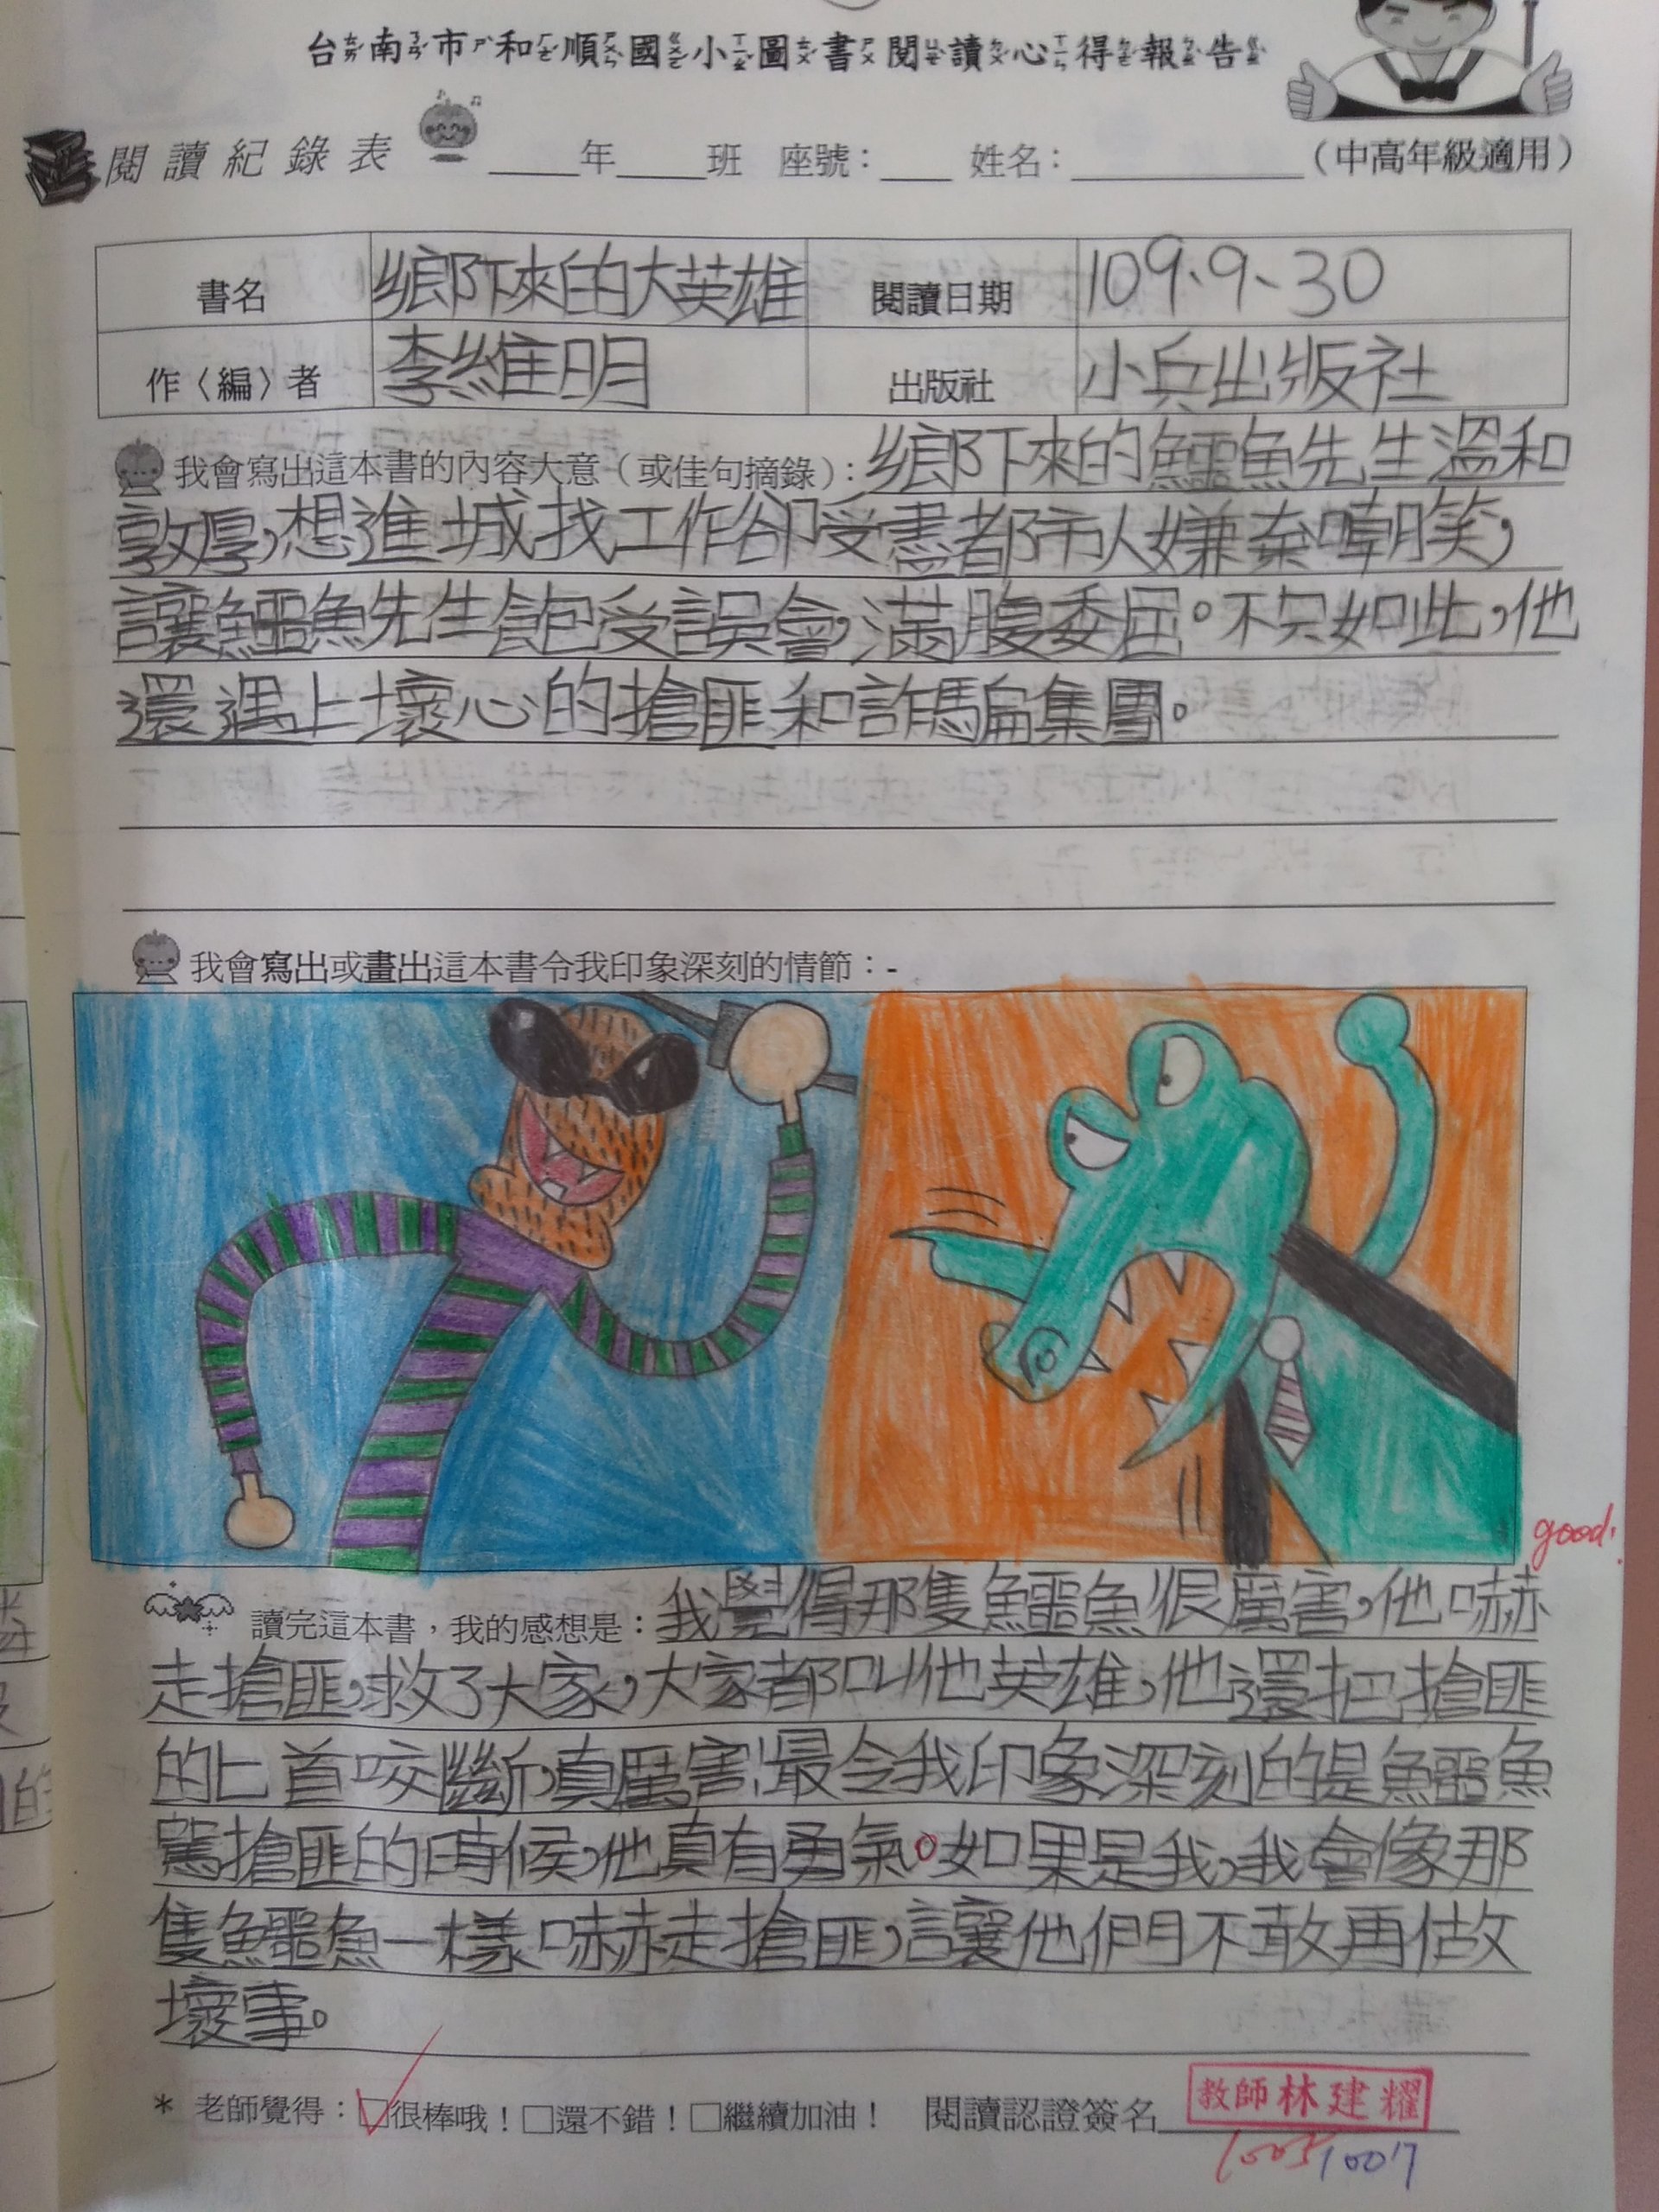 台南市和順國小圖書閱讀心得報告
閱讀紀錄表 ____年____班 座號：____ 姓名：____________（中高年級適用）
書名 鄉下來的大英雄 閱讀日期 109.9.30
作〈編〉者 李維明 出版社 小兵出版社
我會寫出這本書的內容大意（或佳句摘錄）：鄉下來的鱷魚先生溫和
敦厚，想進城找工作卻受盡都市人嫌棄嘲笑，
讓鱷魚先生飽受誤會，滿腹委屈。不只如此，他
還遇上壞心的搶匪和詐騙集團。
我會寫出或畫出這本書令我印象深刻的情節：-
good!
讀完這本書，我的感想是：我覺得那隻鱷魚很厲害，他嚇
走搶匪，救了大家，大家都叫他英雄，他還把搶匪
的匕首咬斷，真厲害！最令我印象深刻的是鱷魚
罵搶匪的時候，他真有勇氣。如果是我，我會像那
隻鱷魚一樣嚇走搶匪，讓他們不敢再做
壞事。
* 老師覺得：☑很棒哦！□還不錯！□繼續加油！ 閱讀認證簽名 教師林建耀
1005 1007